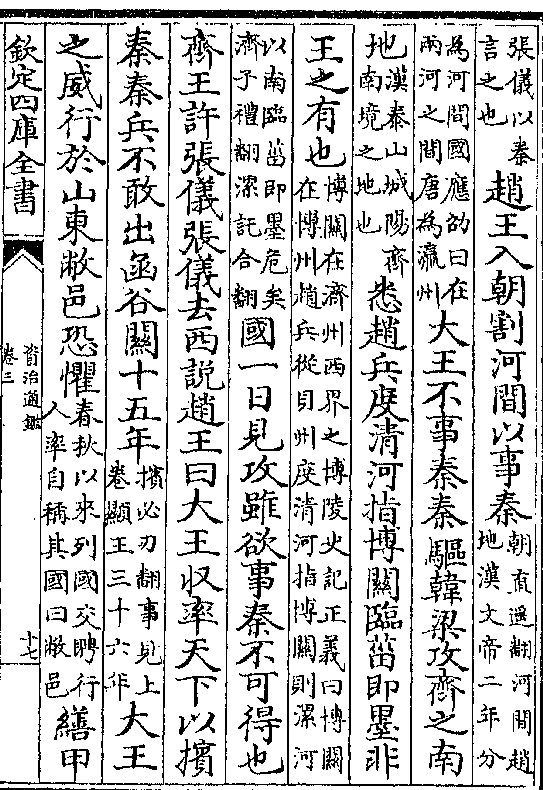 張儀以秦言之也趙王入朝割河間以事秦朝直遥翻河間趙地漢文帝二年分
為河間國應劭曰在兩河之間唐為瀛州大王不事秦秦驅韓梁攻齊之南
地漢泰山城陽齊南境之地也悉趙兵度清河指博關臨菑即墨非
王之有也博關在濟州西界之博陵史記正義曰博關在博州趙兵從貝州度清河指博關則漯河
以南臨菑即墨危矣濟子禮翻漯託合翻國一日見攻雖欲事秦不可得也
齊王許張儀張儀去西説趙王曰大王収率天下以擯
秦秦兵不敢出函谷關十五年擯必刃翻事見上卷顯王三十六年大王
之威行於山東敝邑恐懼春秋以來列國交聘行人率自稱其國曰敝邑繕甲
欽定四庫全書
資治通鑑
卷三
十七